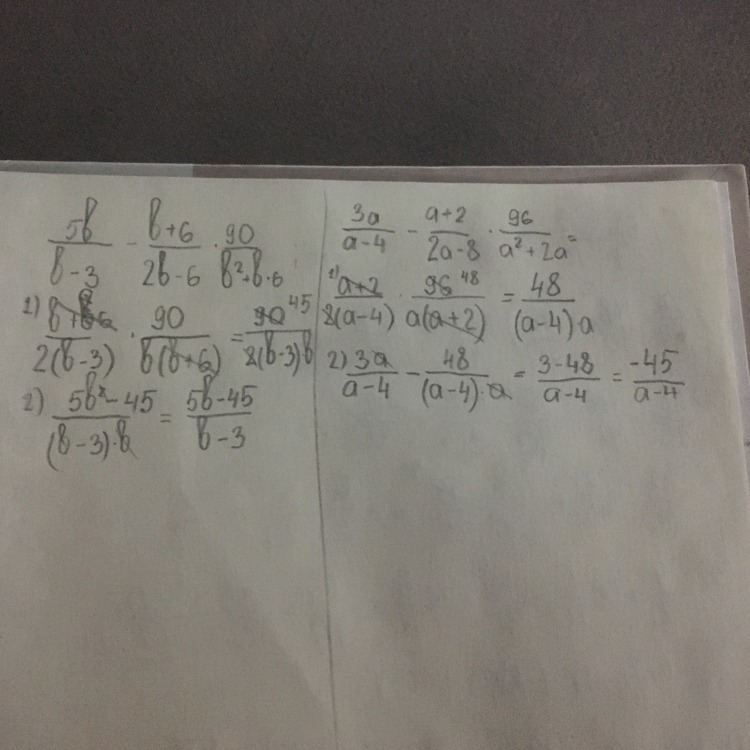 5b/(b-3) - (b+6)/(2b-6) · 90/(b²+b·6)
1) (b+6)/(2(b-3)) · 90/(b(b+6)) = 90 45/(2(b-3)b)
2) (5b²-45)/((b-3)·b) = (5b-45)/(b-3)
3a/(a-4) - (a+2)/(2a-8) · 96/(a²+2a) =
1) (a+2)/(2(a-4)) · 96 48/(a(a+2)) = 48/((a-4)a)
2) 3a/(a-4) - 48/((a-4)·a) = (3-48)/(a-4) = -45/(a-4)